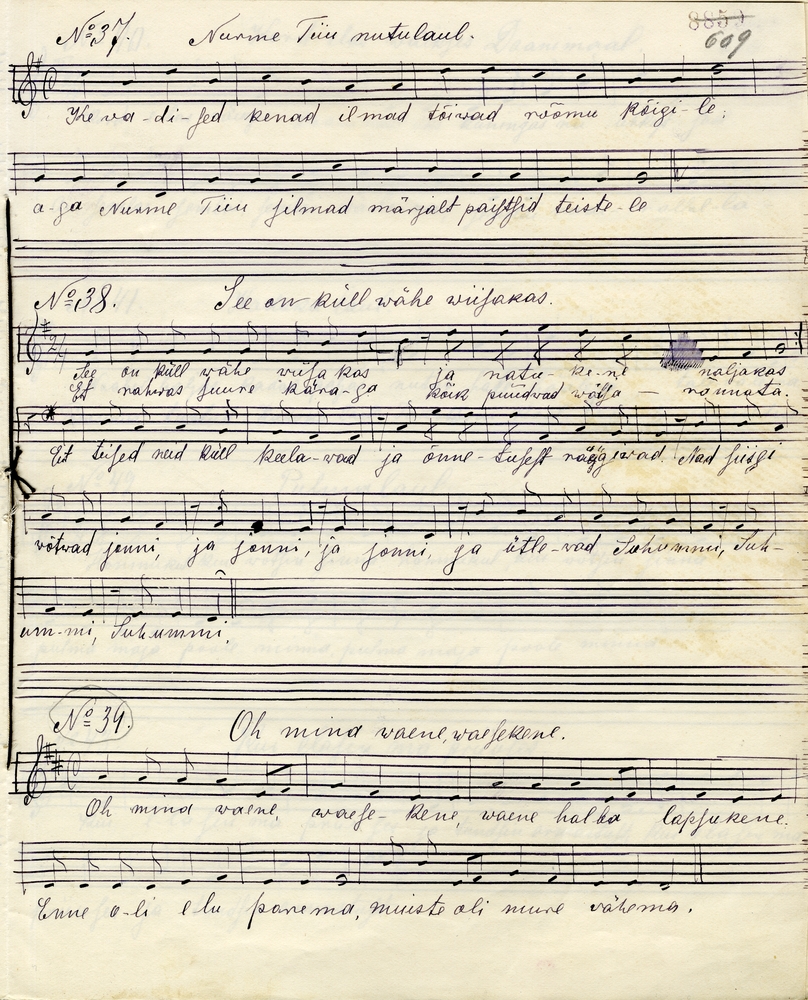 8859
609
№37. Nurme Tiiu nutulaul.
Ke va-di-sed kenad ilmad tõiwad rõõmu kõigi-le;
a-ga Nurme Tiiu silmad märjalt paistsid teiste-le
№38. See on küll wähe wiisakas.
2/4
See on küll wähe wiisa kas ja natu-ke-ne naljakas
Et rahwas suure kära-ga kõik püüdwad wälja — rännata.
Et teised neid küll keela-wad ja õnne-tusest räägiwad. Nad siisgi
võtwad jonni, ja jonni, ja jonni, ja ütle-vad Suhummi, Suh-
um-mi, Suhummi.
№39. Oh mind waene, waesekene.
Oh mind waene, waese-kene, waene halba lapsukene.
Enne o-li elu parema, muiste oli mure vähema.